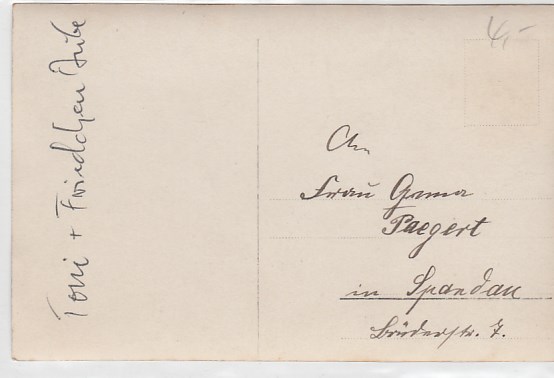 Toni + Friedchen Dube
4,-
An
Frau Gama
Paegert
in Spandau
Brüderstr. 7.